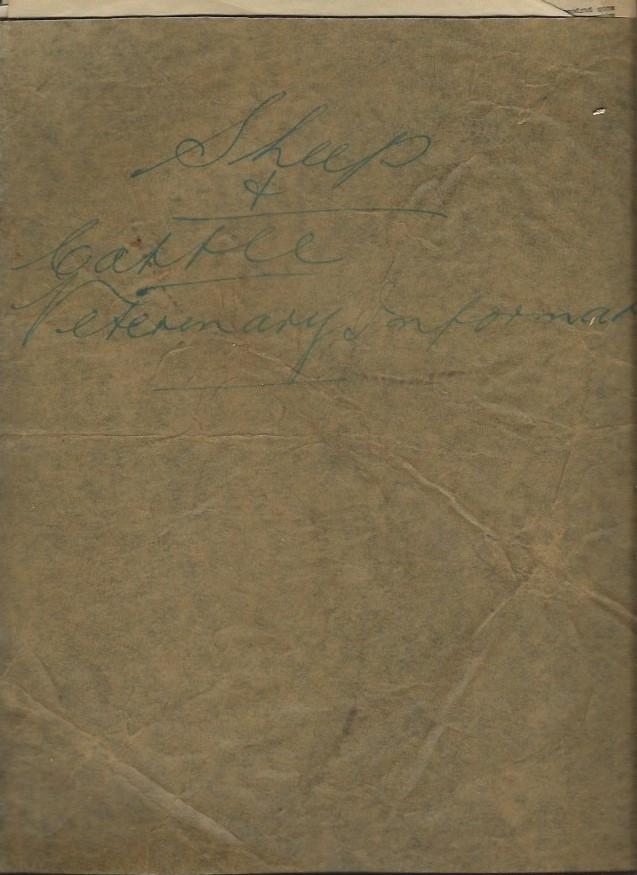 Sheep
&
Cattle
Veterinary Informat